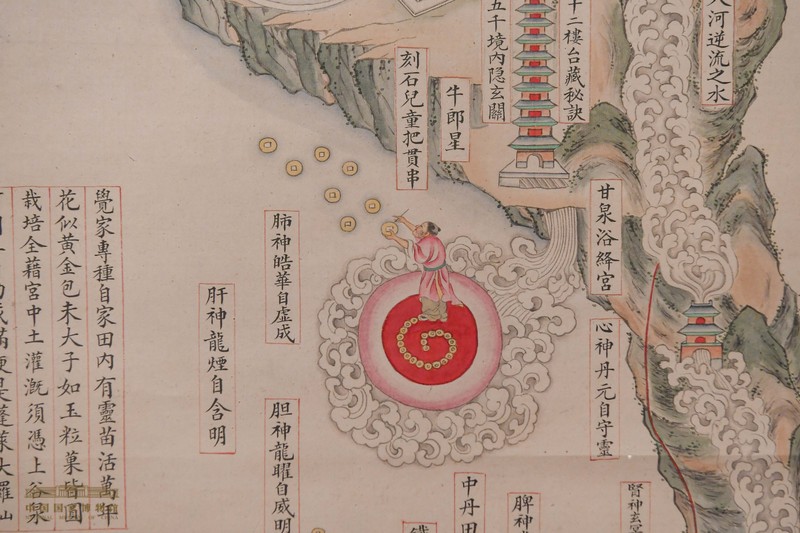 河逆流之水
十二樓台藏秘訣
五千境內隐玄關
牛郎星
刻石兒童把貫串
甘泉浴絳宮
心神丹元自守靈
肺神皓華自虛成
肝神龍煙自含明
胆神龍曜自威明
腎神玄冥
脾神
中丹田
覺家專種自家田內有靈苗活萬年
花似黃金包未大子如玉粒菓皆圓
栽培全藉宮中土灌溉須憑上谷泉
滿便是蓬萊大羅
中国国家博物馆